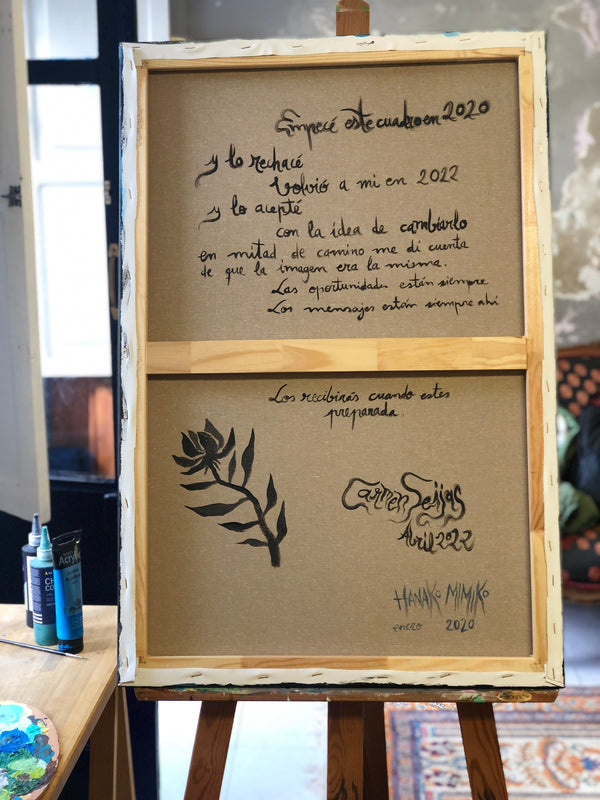 Empecé este cuadro en 2020
y lo rechacé
Volvió a mi en 2022
y lo acepté
con la idea de cambiarlo
en mitad de camino me di cuenta
de que la imagen era la misma.
Las oportunidades están siempre
Los mensajes están siempre ahí
Los recibirás cuando estes
preparada.
Carmen Seijas
Abril 2022
HANAKO MIMIKO
enero 2020
Acryl